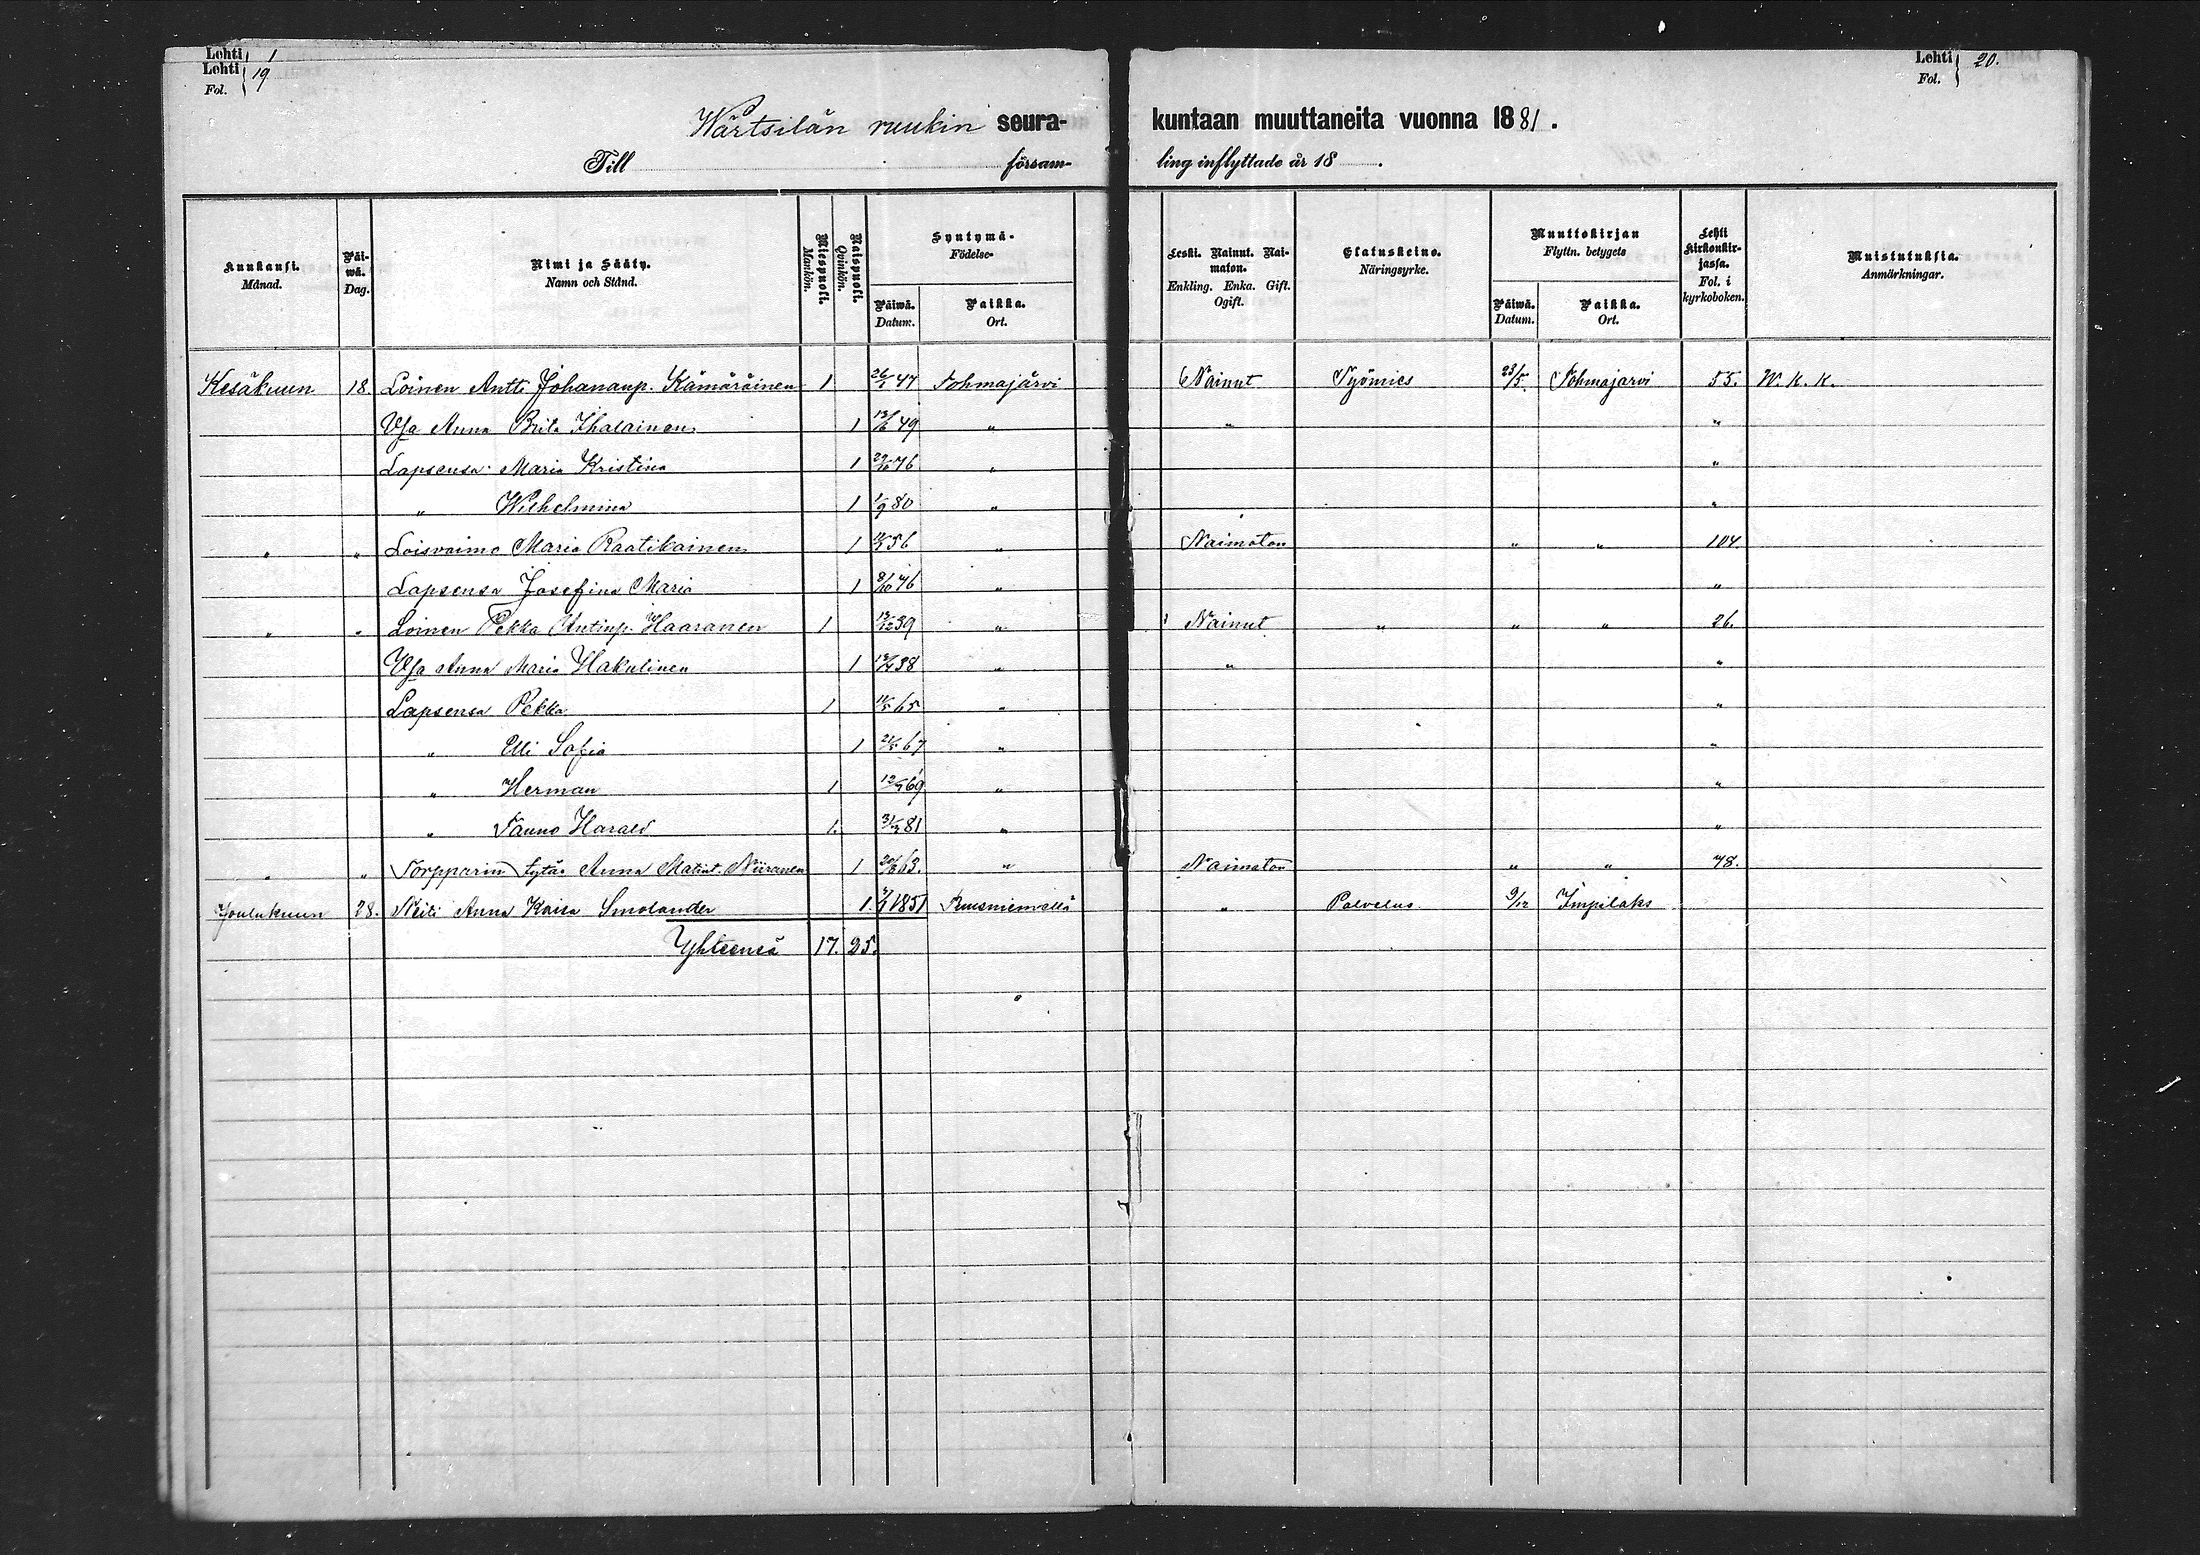 Lehti 1
Lehti 19 Lehti 20.
Fol. Fol.
Wärtsilän ruukin seura- kuntaan muuttaneita vuonna 1881.
Till församling inflyttade år 18 .
Kuukausi. Månad. Päiwä. Dag. Nimi ja Sääty. Namn och Stånd. Miespuoli. Mankön. Naispuoli. Qvinkön. Syntymä- Födelse- Päiwä. Datum. Paikka. Ort. Leski. Nainut. Naimaton. Enkling. Enka. Gift. Ogift. Elatuskeino. Näringsyrke. Muuttokirjan Flyttn. betygets Päiwä. Datum. Paikka. Ort. Lehti kirkonkirjassa. Fol. i kyrkoboken. Muistutuksia. Anmärkningar.
Kesäkuun 18. Loinen Antti Johananp. Kämäräinen 1 26/1 47 Tohmajärvi Nainut Työmies 23/5. Tohmajarvi 55. W. K. K.
Vsa Anna Brita Ihalainen 1 49 " " "
Lapsensa Maria Kristina 1 76 " "
" Wilhelmina 1 1/9 80 " "
" " Loisvaimo Maria Raatikainen 1 56 " Naimaton " " 104.
Lapsensa Josefina Maria 1 8/10 76 " "
" " Loinen Pekka Antinp. Haaranen 1 39 " Nainut " " " 26.
Vsa Anna Maria Hakulinen 1 38 " " "
Lapsensa Pekka 1 65 " "
" Elli Sofia 1 67 " "
" Herman 1 69 " "
" Tauno Harald 1. 81 " "
" " Torpparin tytär Anna Matint. Niiranen 1 63. " Naimaton " " 78.
Joulukuun 28. Neiti Anna Kaisa Smolander 1. 1851 " Palvelus 9/12 Impilaks
Yhteensä 17. 25.